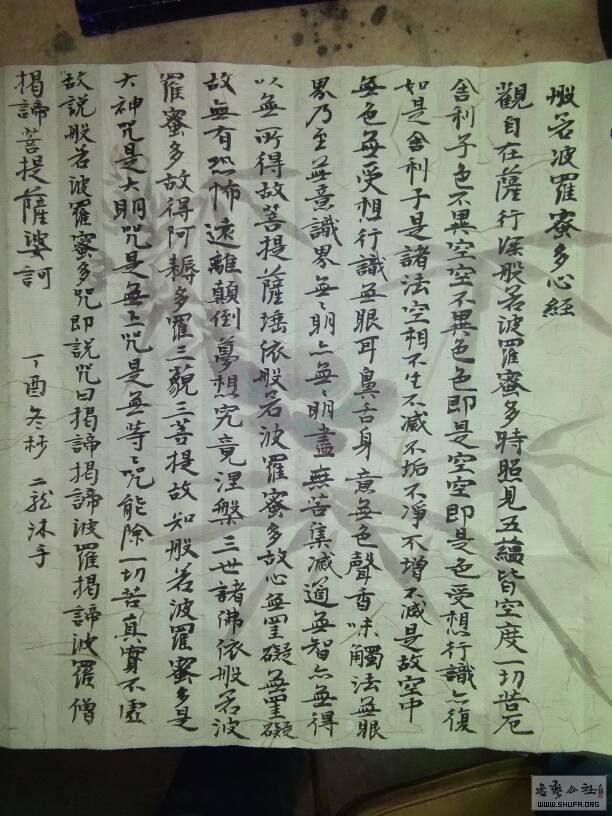 般若波羅蜜多心經
觀自在薩行深般若波羅蜜多時照見五蘊皆空度一切苦厄
舍利子色不異空空不異色色即是空空即是色受想行識亦復
如是舍利子是諸法空相不生不滅不垢不淨不增不減是故空中
無色無受想行識無眼耳鼻舌身意無色聲香味觸法無眼
界乃至無意識界無〻明亦無〻明盡無苦集滅道無智亦無得
以無所得故菩提薩埵依般若波羅蜜多故心無罣礙無罣礙
故無有恐怖遠離顛倒夢想究竟涅槃三世諸佛依般若波
羅蜜多故得阿耨多羅三藐三菩提故知般若波羅蜜多是
大神咒是大明咒是無上咒是無等〻咒能除一切苦真實不虛
故說般若波羅蜜多咒即說咒曰揭諦揭諦波羅揭諦波羅僧
揭諦菩提薩婆訶 丁酉冬杪 二龍沐手
書藝公社
WWW.SHUFA.ORG